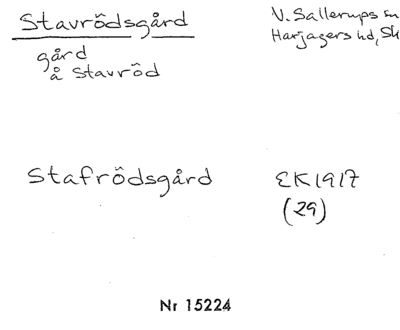 Stavrödsgård
V. Sallerups sn
Harjagers hd, Sk
gård
å Stavröd
Stafrödsgård
EK 1917
(29)
Nr 15224